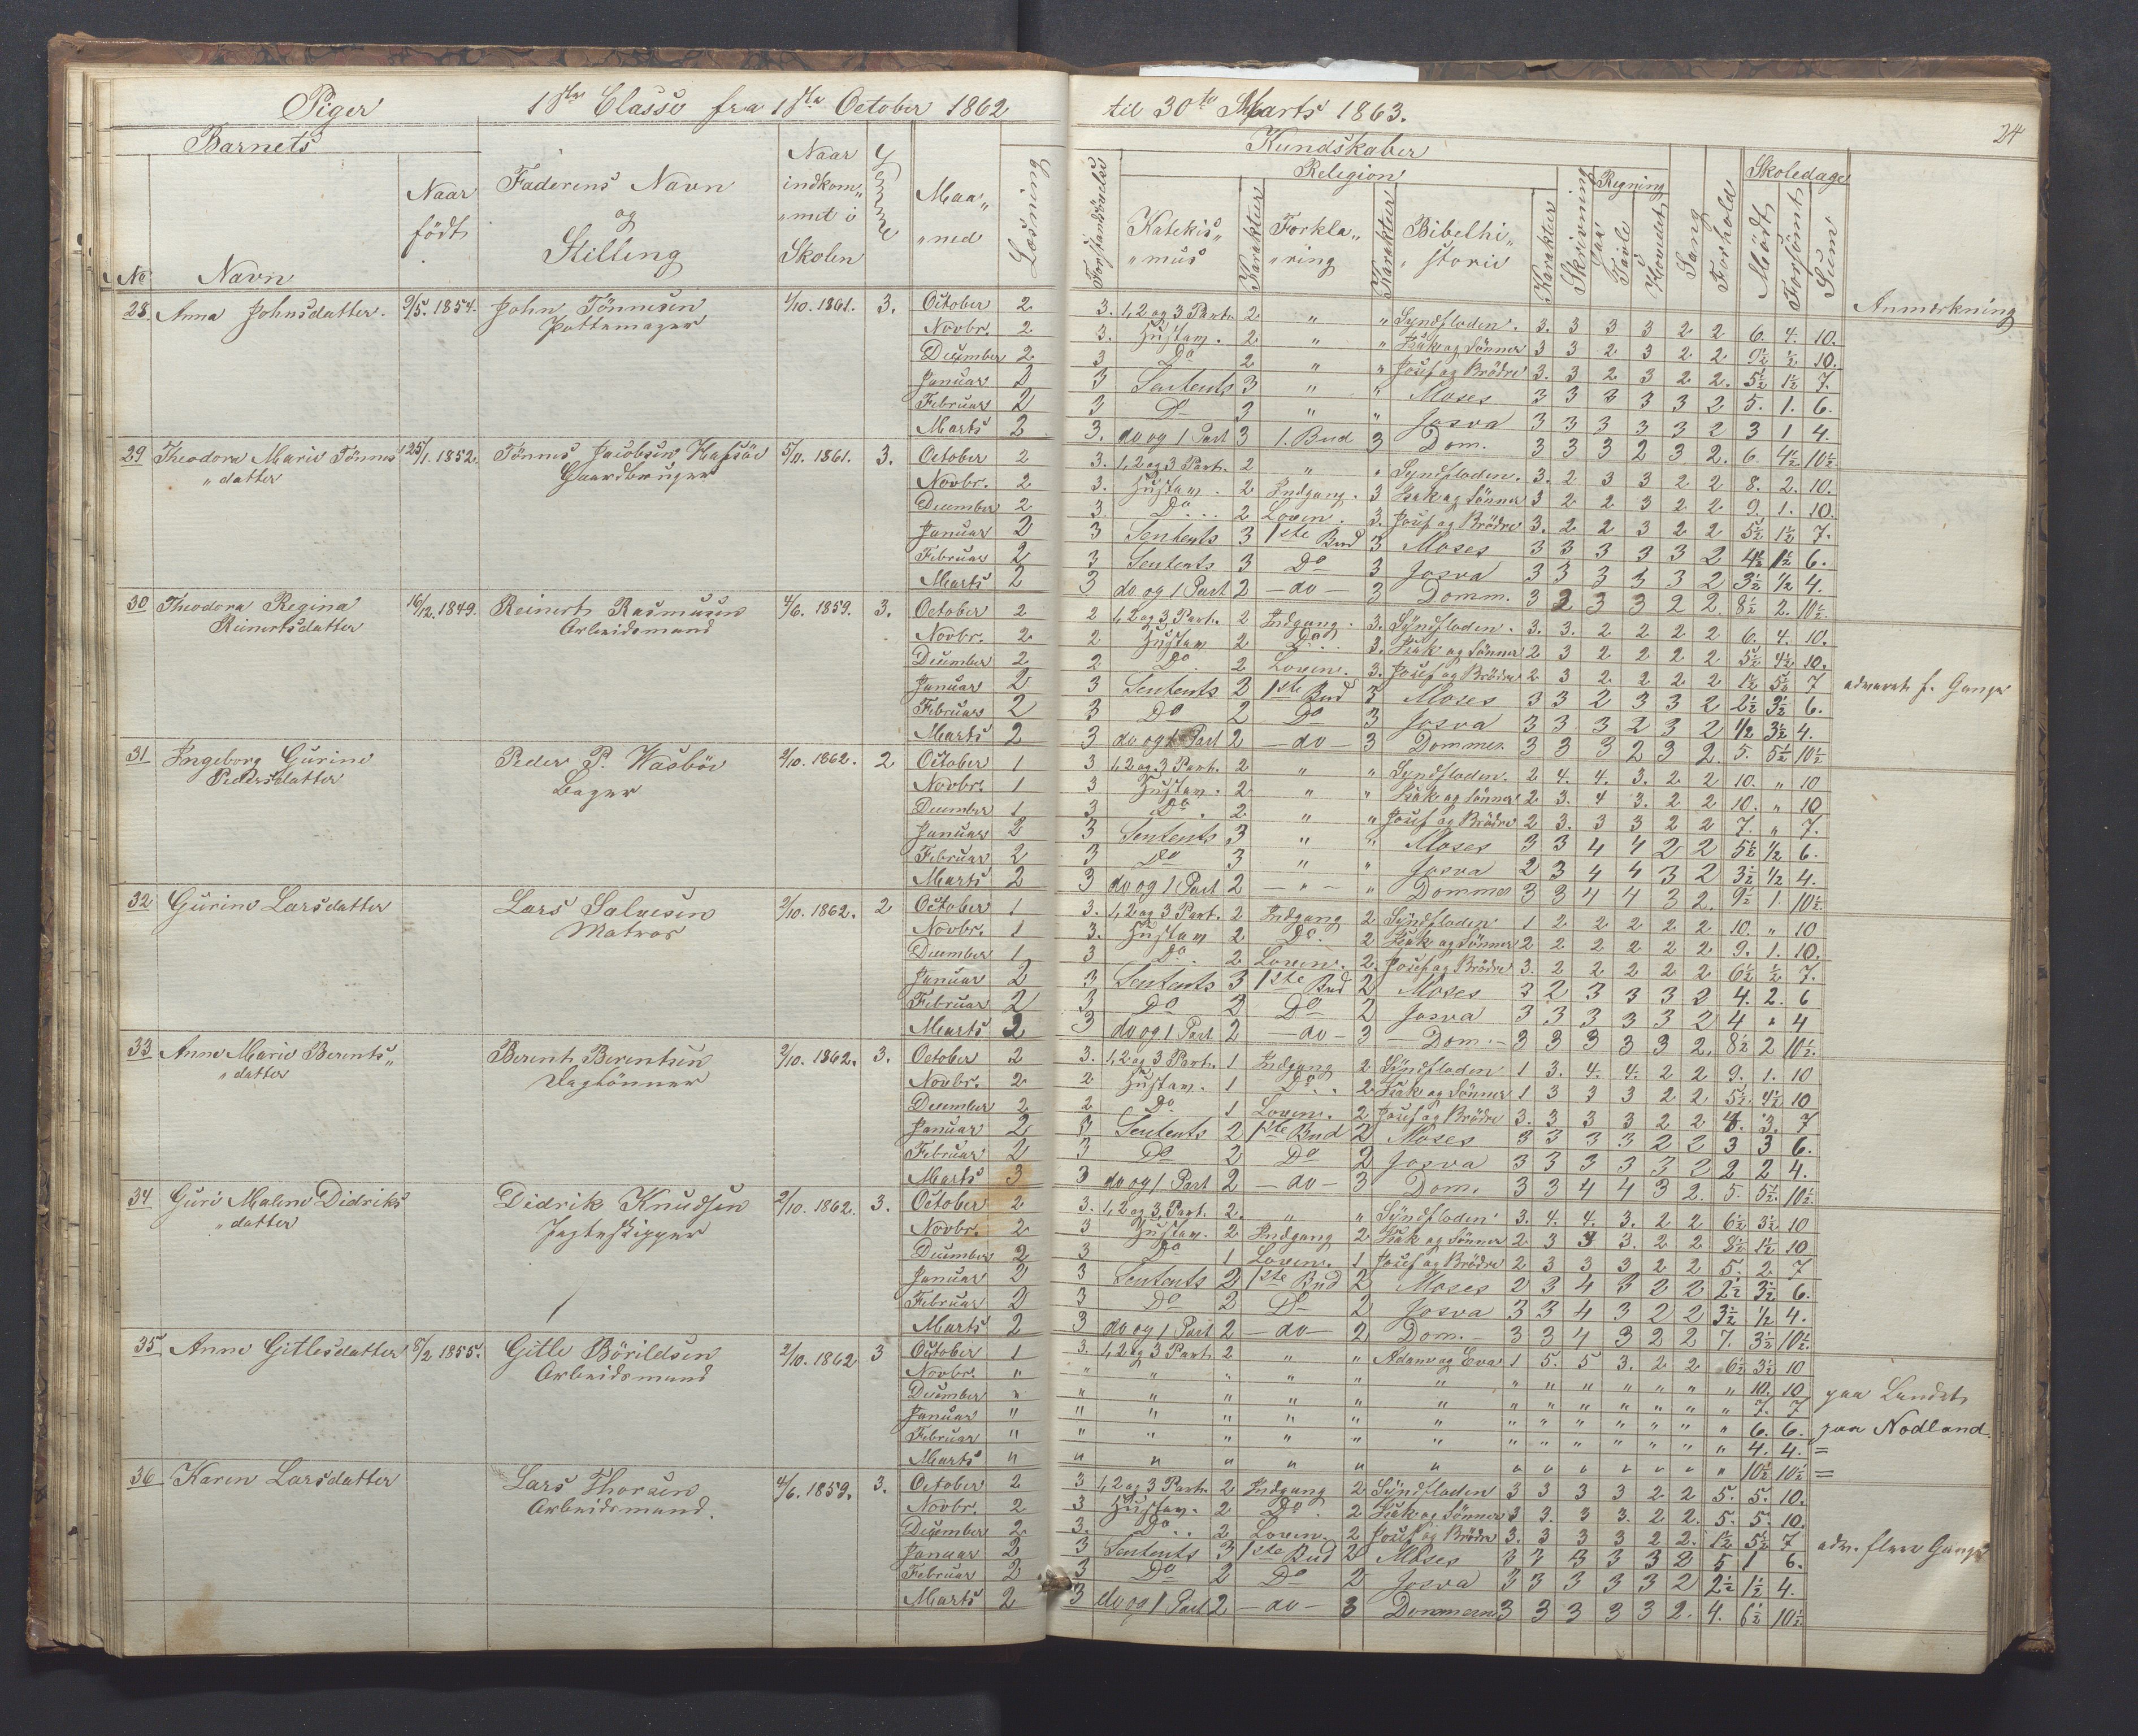 Piger 1ste Classe fra 1ste October 1862 til 30te Marts 1863.
24
Barnets
No Navn
Naar födt
Faderens Navn og Stilling
Naar indkom„ „met i Skolen
Evne
Maa„ „ned
Læsning
Forstandsövelse
Kundskaber
Religion
Katekis„ „mus
Karakter
Forkla„ „ring
Karakter
Bibelhi„ „storie
Karakter
Skrivning
Regning
Paa Tavle
I Hovedet
Sang
Forhold
Skoledage
Mödt
Forsömt
Sum
Anmærkning
28. Anna Johnsdatter. 9/5. 1854. John Tönnesen 1/10. 1861. 3.
Pottemager
October 2 3. 1, 2 og 3 Part. 2 „ „ Syndfloden. 3. 3 3 3 2 2 6. 4. 10.
Novbr. 2 3. Hustav. 2 „ „ Isak og Sönner 3 3 2 3 2 2 9½ ½ 10.
December 2 3 Do 2 „ „ Josef og Brödre 3. 3 2 3 2 2. 5½ 1½ 7.
Januar 2 3 Sentents 3 „ „ Moses 3 3 3 3 3 2 5. 1. 6.
Februar 2 3 Do 3 „ „ Josva 3 3 3 3 3 2 3 1 4.
Marts 2 3. do og 1 Part 3 1. Bud 3 Dom. 3 3 3 2 3 2. 6. 4½ 10½.
29 Theodora Marie Tönnes„ 25/1. 1852. Tönnes Jacobsen Hafsöe 5/11. 1861. 3.
„datter Gaardbruger
October 2 3. 1, 2 og 3 Part. 2 „ „ Syndfloden. 3. 2 3 3 2 2 8. 2. 10.
Novbr. 2 3. Hustav. 2 Indgang. 3 Isak og Sönner 3 2 2 3 2 2 9. 1. 10.
December 2 3. Do 2 Loven. 3. Josef og Brödre 3. 2 2 3 2 2 5½ 1½ 7.
Januar 2 3 Sentents 3 1ste Bud 3 Moses 3 3 3 3 3 2 4½ 1½ 6.
Februar 2 3 Sentents 3 Do 3 Josva 3 3 3 3 3 2 3½ ½ 4.
Marts 2 3 do og 1 Part 2 – do – 3 Domm. 3 2 3 3 2 2. 8½ 2. 10½.
30 Theodora Regina 16/12. 1849. Reinert Rasmusen 4/6. 1859. 3.
Reinertsdatter Arbeidsmand
October 2 2 1, 2 og 3 Part. 2 Indgang. 3. Syndfloden. 3. 3. 2 2 2 2 6. 4. 10.
Novbr. 2 2 Hustav 2 Do 3. Isak og Sönner 2 3 2 2 2 2 5½ 4½ 10.
December 2 2 Do. 2 Loven. 3. Josef og Brödre 2 3 2 2 2 2 1½ 5½ 7 advaret f. Gange
Januar 2 3 Sentents 2 1ste Bud 3 Moses 3 3 2 3 3 2 2½ 3½ 6.
Februar 2 3 Do 2 Do 3 Josva 3 3 3 2 3 2 ½ 3½ 4.
Marts 2 3 do og 1 Part 2 – do – 3 Dommer 3 3 3 2 3 2. 5. 5½ 10½
31 Ingeborg Gurine Peder P. Vasböe 2/10. 1862. 2
Pedersdatter Bager
October 1 3 1, 2 og 3 Part. 2 „ „ Syndfloden. 2 4. 4. 3. 2 2 10. „ 10
Novbr. 1 3 Hustav. 2 „ „ Isak og Sönner 2 3. 4 3. 2 2 10. „ 10
December 1 3 Do. 2 „ „ Josef og Brödre 2 3. 3 3 2 2 7. „ 7.
Januar 2 3 Sentents 3 „ „ Moses 3 3 4 4 2 2 5½ ½ 6.
Februar 2 3 Do 3 „ „ Josva 2 3 4 4 3 2 3½ ½ 4.
Marts 2 3 do og 1 Part 2 – „ – „ Dommer 3 3 4 4 3 2. 9½ 1. 10½.
32 Gurine Larsdatter Lars Salvesen 2/10. 1862. 2
Matros
October 1 3. 1, 2 og 3 Part. 2 Indgang 2 Syndfloden 1 2 2 2 2 2 10. „ 10
Novbr. 1 3. Hustav 2 Do. 2 Isak og Sönner 2 2 2 2 2 2 9. 1. 10.
December 1 3 Do. 2 Loven. 2. Josef og Brödre 3. 2 2 2 2 2 6½ ½ 7.
Januar 2 3 Sentents 3 1ste Bud 2 Moses 3 2 3 3 3 2 4. 2. 6
Februar 2 3 Do 2 Do 2 Josva 3 3 3 3 3 2 4 „ 4
Marts 2 3 do og 1 Part 2 – do – 3 – Dom. – 3 3 3 3 3 2. 8½ 2 10½.
33 Anne Marie Berents„ Berent Berentsen 2/10. 1862. 3.
„datter Daglönner
October 2 3. 1, 2 og 3 Part. 1 Indgang 2 Syndfloden 1 3. 4. 4. 2 2 9. 1. 10
Novbr. 2 2 Hustav. 1 Do. 2 Isak og Sönner 1 3 3 3 2 2 5½. 4½ 10
December 2 2 Do. 1 Loven. 2 Josef og Brödre 3. 3 3 3 2 2 4. 3. 7
Januar 2 3 Sentents 2 1ste Bud 2 Moses 3 3 3 3 2 2 3 3 6.
Februar 2 3 Do 2 Do 2 Josva 3 3 3 3 3 2 2 2 4.
Marts 3 3 do og 1 Part 2 – do – 3 Dom. 3 3 4 4 3 2. 5. 5½. 10½.
34 Guri Malene Didriks Didrik Knudsen 2/10. 1862. 3.
„datter Jagteskipper
October 2 3. 1, 2 og 3. Part. 2. „ „ Syndfloden 3. 4. 4. 3. 2 2 6½ 3½ 10
Novbr. 2 3 Hustav. 2 Indgang 2 Isak og Sönner 2 3 3 3. 2 2 8½ 1½ 10
December 2 3 Do 1 Loven. 1 Josef og Brödre 2 3 3 3 2 2 5. 2. 7
Januar 2 3 Sentents 2 1ste Bud 2 Moses 2 3 4 3 2 2 2½ 3½ 6.
Februar 2 3 Do 2 Do 2 Josva 3 3 4 3 2 2 3½ ½ 4.
Marts 2 3 do og 1 Part 2 – do – 2 Dom. – 3 3 4 3 2 2 7. 3½ 10½.
35 Anne Gitlesdatter 8/2 1855. Gitle Börildsen 2/10. 1862 3
Arbeidsmand
October 1 3. 1, 2 og 3 Part. 2 „ „ Adam og Eva 1 5. 5 3. 2 2 6½ 3½ 10
Novbr. „ „ „ „ „ „ „ „ „ „ „ „ „ „ 10. 10. paa Landet
December „ „ „ „ „ „ „ „ „ „ „ „ „ „ 7. 7
Januar „ „ „ „ „ „ „ „ „ „ „ „ „ „ 6. 6. paa Nodland.
Februar „ „ „ „ „ „ „ „ „ „ „ „ „ „ 4. 4. =
Marts „ „ „ „ „ „ „ „ „ „ „ „ „ „ 10½ 10½ =
36 Karen Larsdatter Lars Thorsen 4/6. 1859. 3.
Arbeidsmand.
October 2 3 1, 2 og 3 Part. 2 Indgang 2 Syndfloden 3 3 3 3 2 2 5. 5. 10.
Novbr. 2 3 Hustav. 2 Do. 2 Isak og Sönner 3 3. 3 3. 2 2. 5. 5. 10.
December 2 3. Do. 2 Loven. 2 Josef og Brödre 3. 3 3 3 2 2. 1½ 5½ 7 adv. flere Gange
Januar 2 3 Sentents 3 1ste Bud 2 Moses 3 3 3 3 3 2 5 1 6.
Februar 2 3 Do 2 Do 2 Josva 3 3 3 3 3 2 2½ 1½ 4.
Marts 2 3 do og 1 Part 2 – do – 3 Dommerne 3 3 3 3 3 2. 4. 6½ 10½